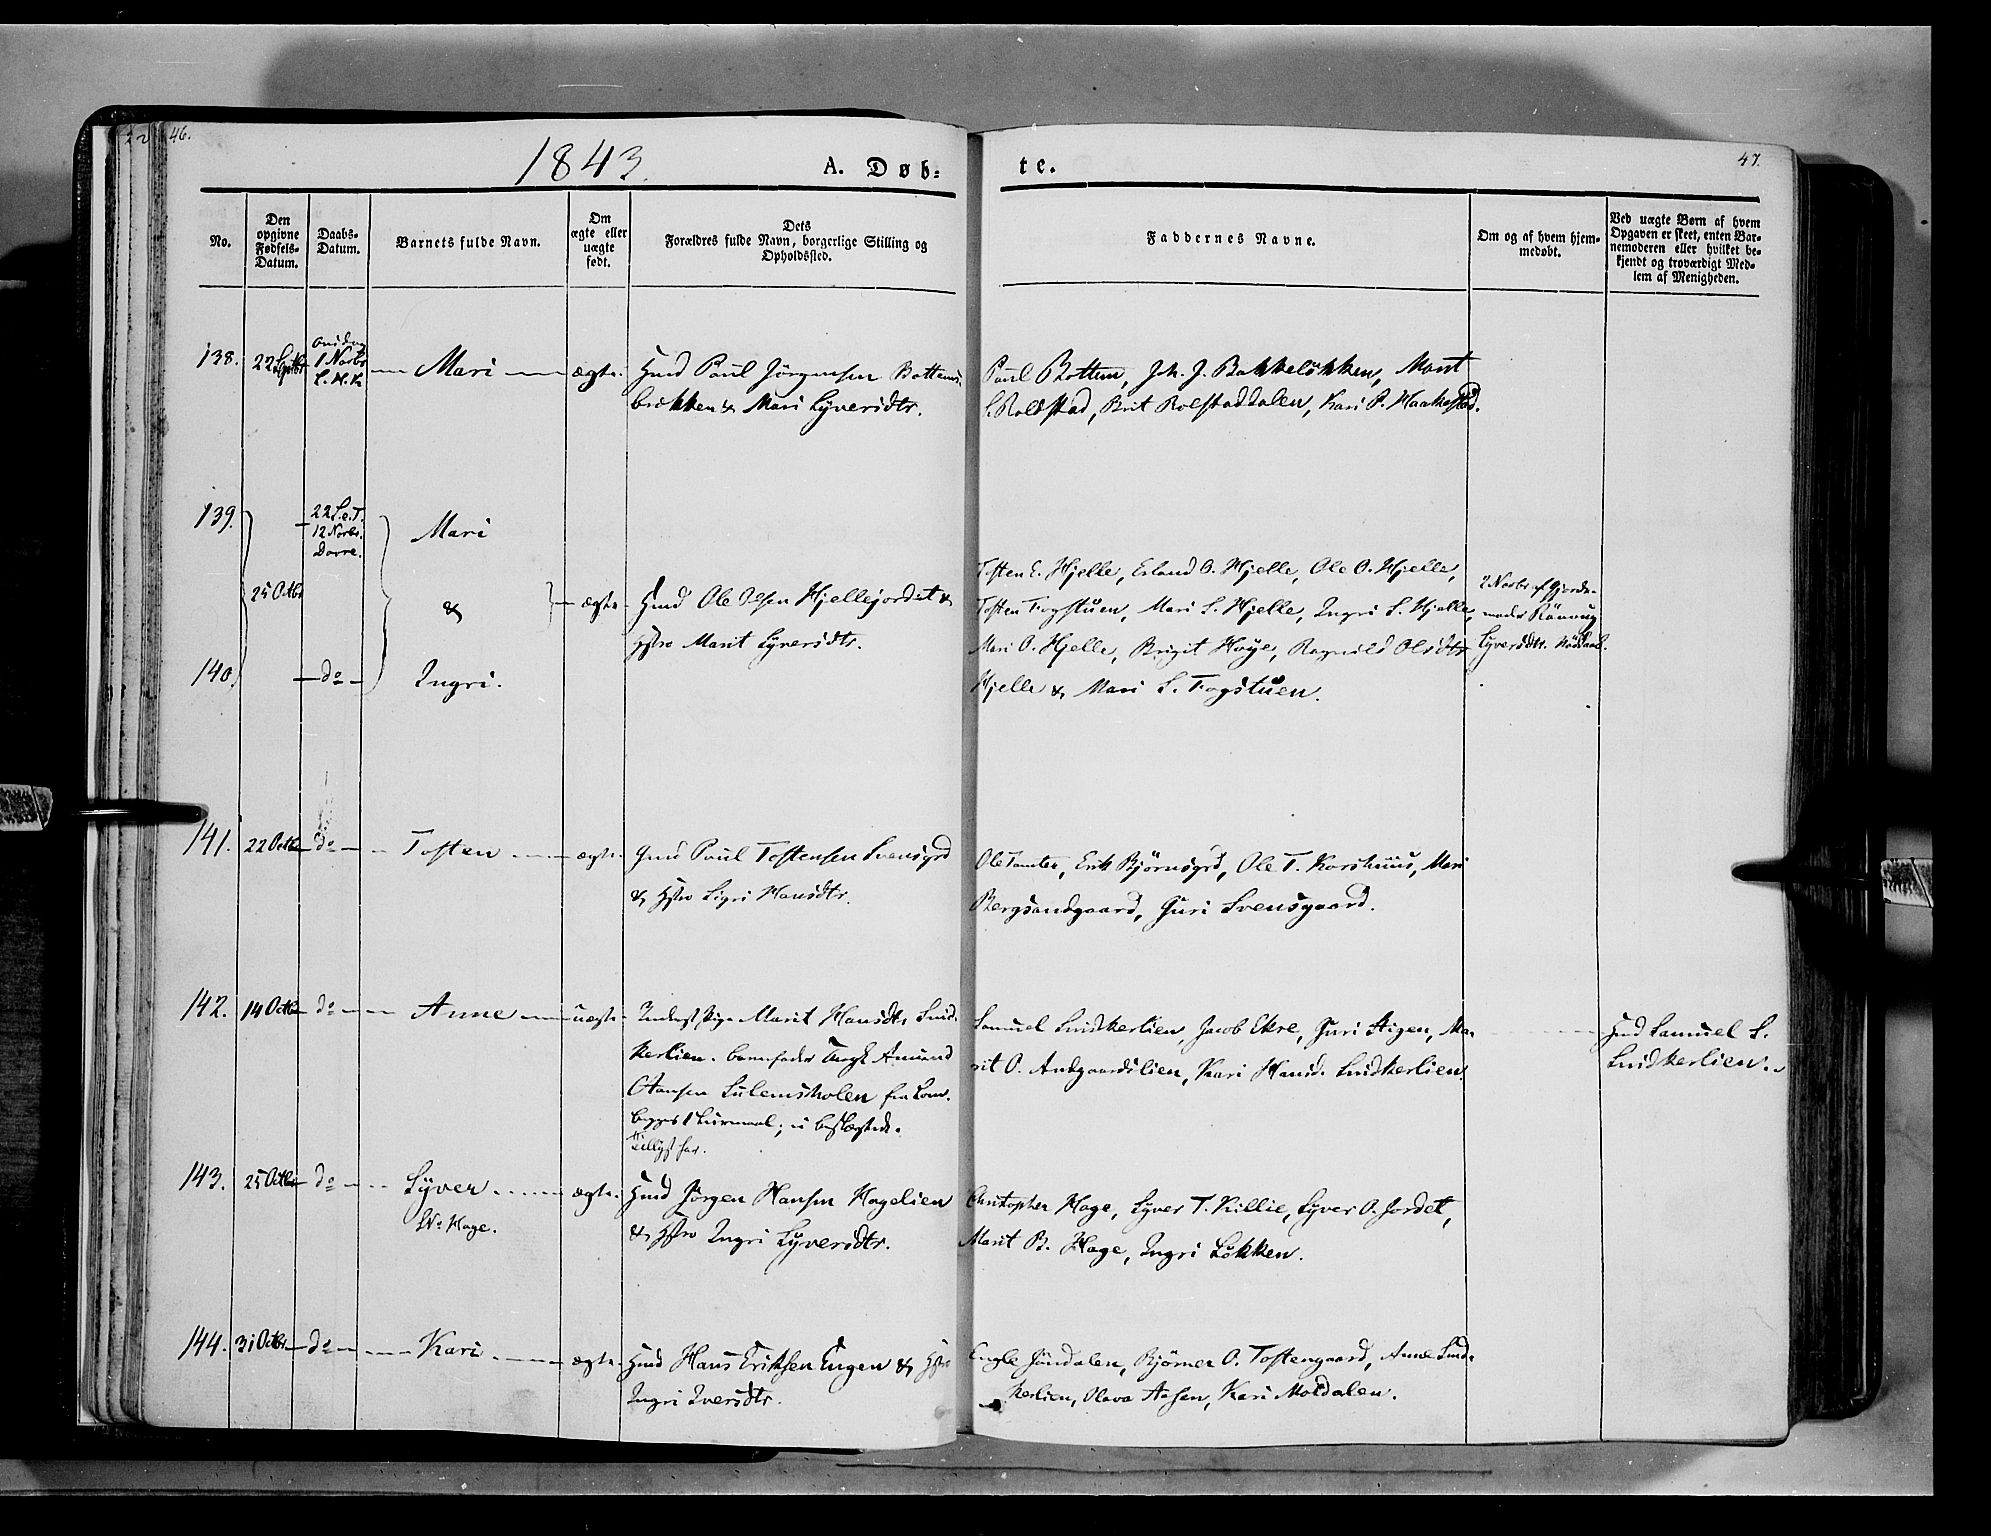 46.
1843.
A. Døb-
te.
47.
No.
Den
opgivne
Fødsels-
Datum.
Daabs-
Datum.
Barnets fulde Navn.
Om
ægte eller
uægte
født.
Dets
Forældres fulde Navn, borgerlige Stilling og
Opholdssted.
Faddernes Navne.
Om og af hvem hjem-
medøbt.
Ved uægte Børn af hvem
Opgaven er skeet, enten Bar-
nemoderen eller hvilket be-
kjendt og troværdigt Med-
lem af Menigheden.
138. 22 Septbr
Onsdag
1 Novbr
Mari ægte. Paul Jörgensen Bottems-
brækken & Mari Syversdtr.
Paul Bottem, Joh. J. Bakkelökken, Marit
S. Rolstad, Brit Rolstaddalen, Kari P. Haakestad.
139.
22 S. e. T.
12 Novbr.
Dovre.
Mari
25 Octbr
& ægte Ole Olsen Hjellejordet &
Hstro Marit Syversdtr.
140. do Ingri.
Tosten E. Hjelle, Erland O. Hjelle, Ole O. Hjelle,
Tosten Fogstuen, Mari S. Hjelle, Ingri S. Hjelle,
Mari O. Hjelle, Brigit Høye, Ragnild Olsdtr
Hjelle & Mari S. Fogstuen.
2 Novbr af Gjorde-
moder Rönnug
Syversdtr.
141. 22 Octbr do Tosten ægte. Paul Tostensen Svensgrd
& Hstro Sigri Hansdtr.
Ole Tamter, Erik Björnsgrd, Ole T. Korshuus, Mari
Bergsandgaard, Guri Svensgaard.
142. 14 Octbr do Anne uægte. Marit Hansdtr Snid-
kerlien. Barnefader Ungk Amund
Hansen Sulemsholen fra Lom.
Begges 1 Leiermaal;
Samuel Snidkerlien, Jacob Ekre, Guri Stigen, Ma-
rit O. Andgaardslien, Kari Hansd. Snidkerlien.
Samuel S.
Snidkerlien.
143. 25 Octbr do Syver ægte. Jörgen Hansen Hagelien
Hage.
& Hstro Ingri Syversdtr.
Christopher Hage, Syver T. Killie, Syver O. Jordet,
Marit B. Hage, Ingri Lökken.
144. 31 Octbr do Kari ægte. Hans Eriksen Engen & Hstro
Ingri Iversdtr.
Engle Jöndalen, Björner O. Tostengaard, Anne Snid-
kerlien, Olava Aasen, Kari Moldalen.